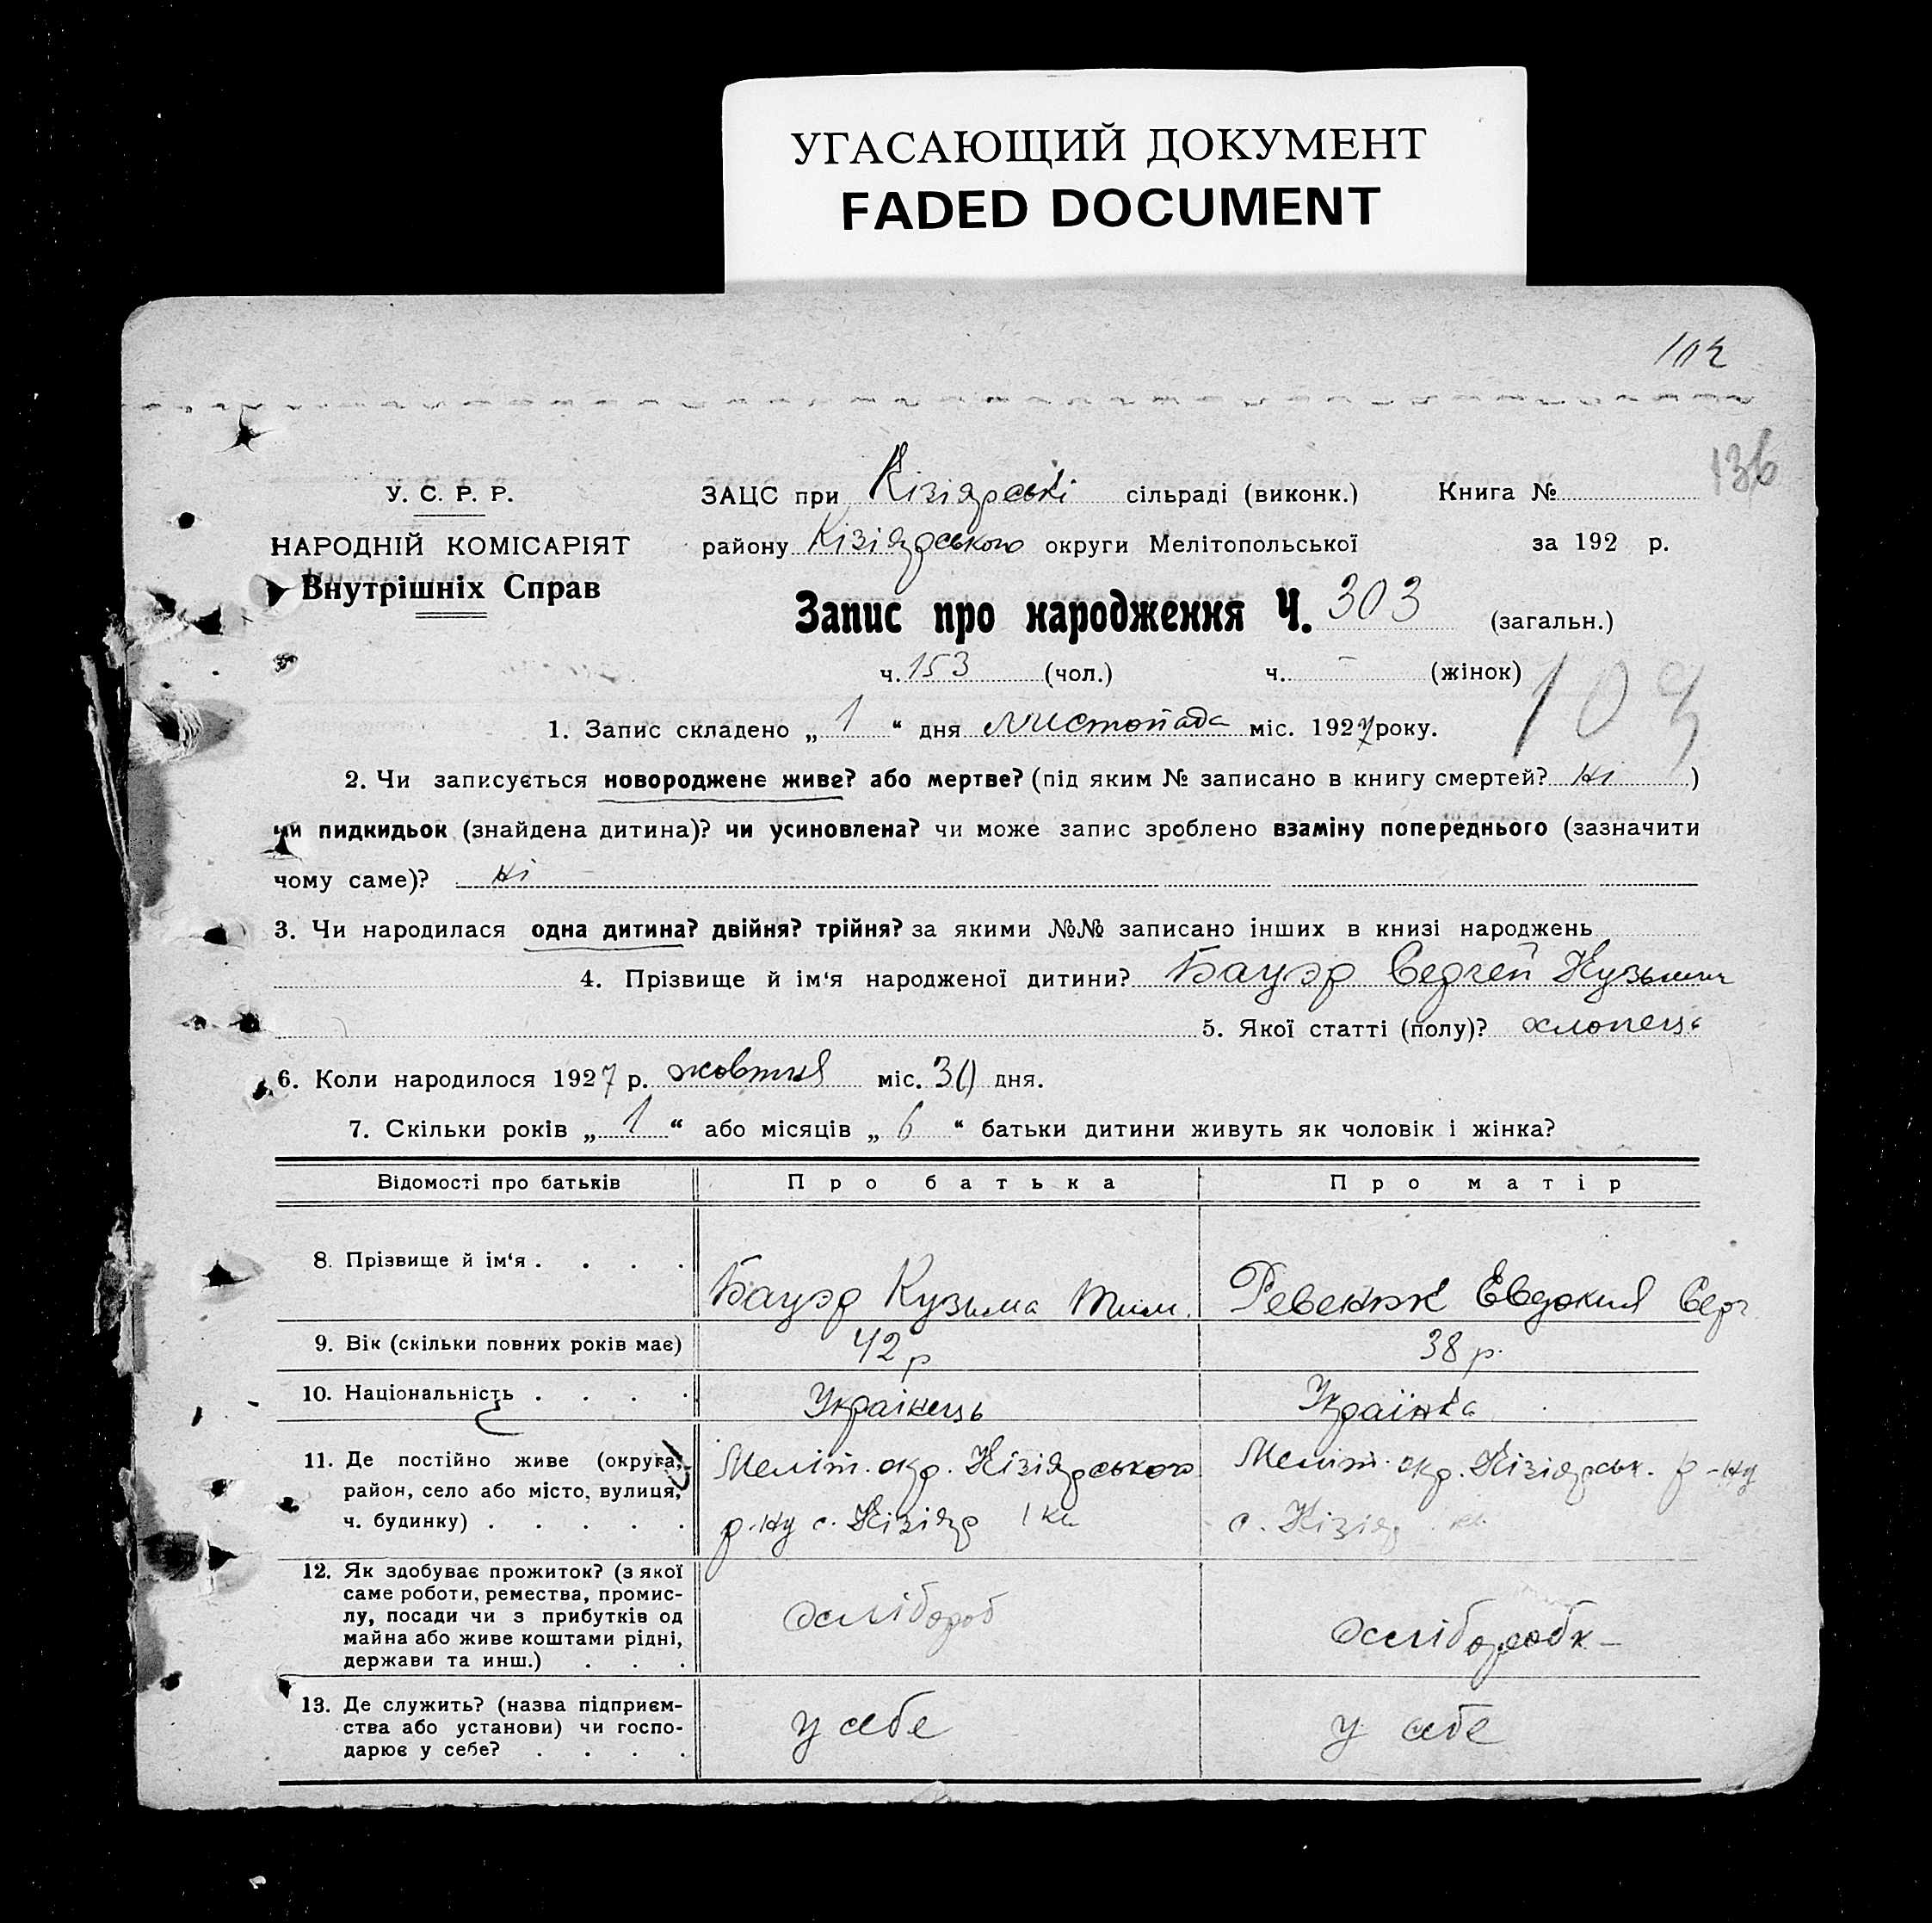 УГАСАЮЩИЙ ДОКУМЕНТ
FADED DOCUMENT
102
136
У. С. Р. Р.
НАРОДНІЙ КОМІСАРІЯТ
Внутрішніх Справ
ЗАЦС при Кізіярські сільраді (виконк.) Книга №
району Кізіярського округи Мелітопольської за 192 р.
Запис про народження Ч. 303 (загальн.)
ч. 153 (чол.) ч. – (жінок)
109
1. Запис складено „ 1 “ дня листопада міс. 1927 року.
2. Чи записується новороджене живе? або мертве? (під яким № записано в книгу смертей? ні )
чи пидкидьок (знайдена дитина)? чи усиновлена? чи може запис зроблено взаміну попереднього (зазначити
чому саме)? ні
3. Чи народилася одна дитина? двійня? трійня? за якими №№ записано інших в книзі народжень
4. Прізвище й ім‘я народженої дитини? Бауэр Сергей Кузьмич
5. Якої статті (полу)? хлопець
6. Коли народилося 1927 р. жовтня міс. 30 дня.
7. Скільки років „ 1 “ або місяців „ 6 “ батьки дитини живуть як чоловік і жінка?
Відомості про батьків Про батька Про матір
8. Прізвище й ім‘я . . . . Бауэр Кузьма Тим. Ревенко Евдокия Серг
9. Вік (скільки повних років має) 42 р 38 р.
10. Національність . . . . Українець Українка
11. Де постійно живе (округа, Меліт. окр. Кізіярського Меліт. окр. Кізіярськ. р-ну
район, село або місто, вулиця,
ч. будинку) . . . . . р-ну с. Кізіяр 1 кв. с. Кізіяр кв.
12. Як здобуває прожиток? (з якої
саме роботи, ремества, промис-
лу, посади чи з прибутків од хлібороб хліборобк
майна або живе коштами рідні,
держави та инш.) . . .
13. Де служить? (назва підприєм-
ства або установи) чи госпо- у себе у себе
дарює у себе? . . . .